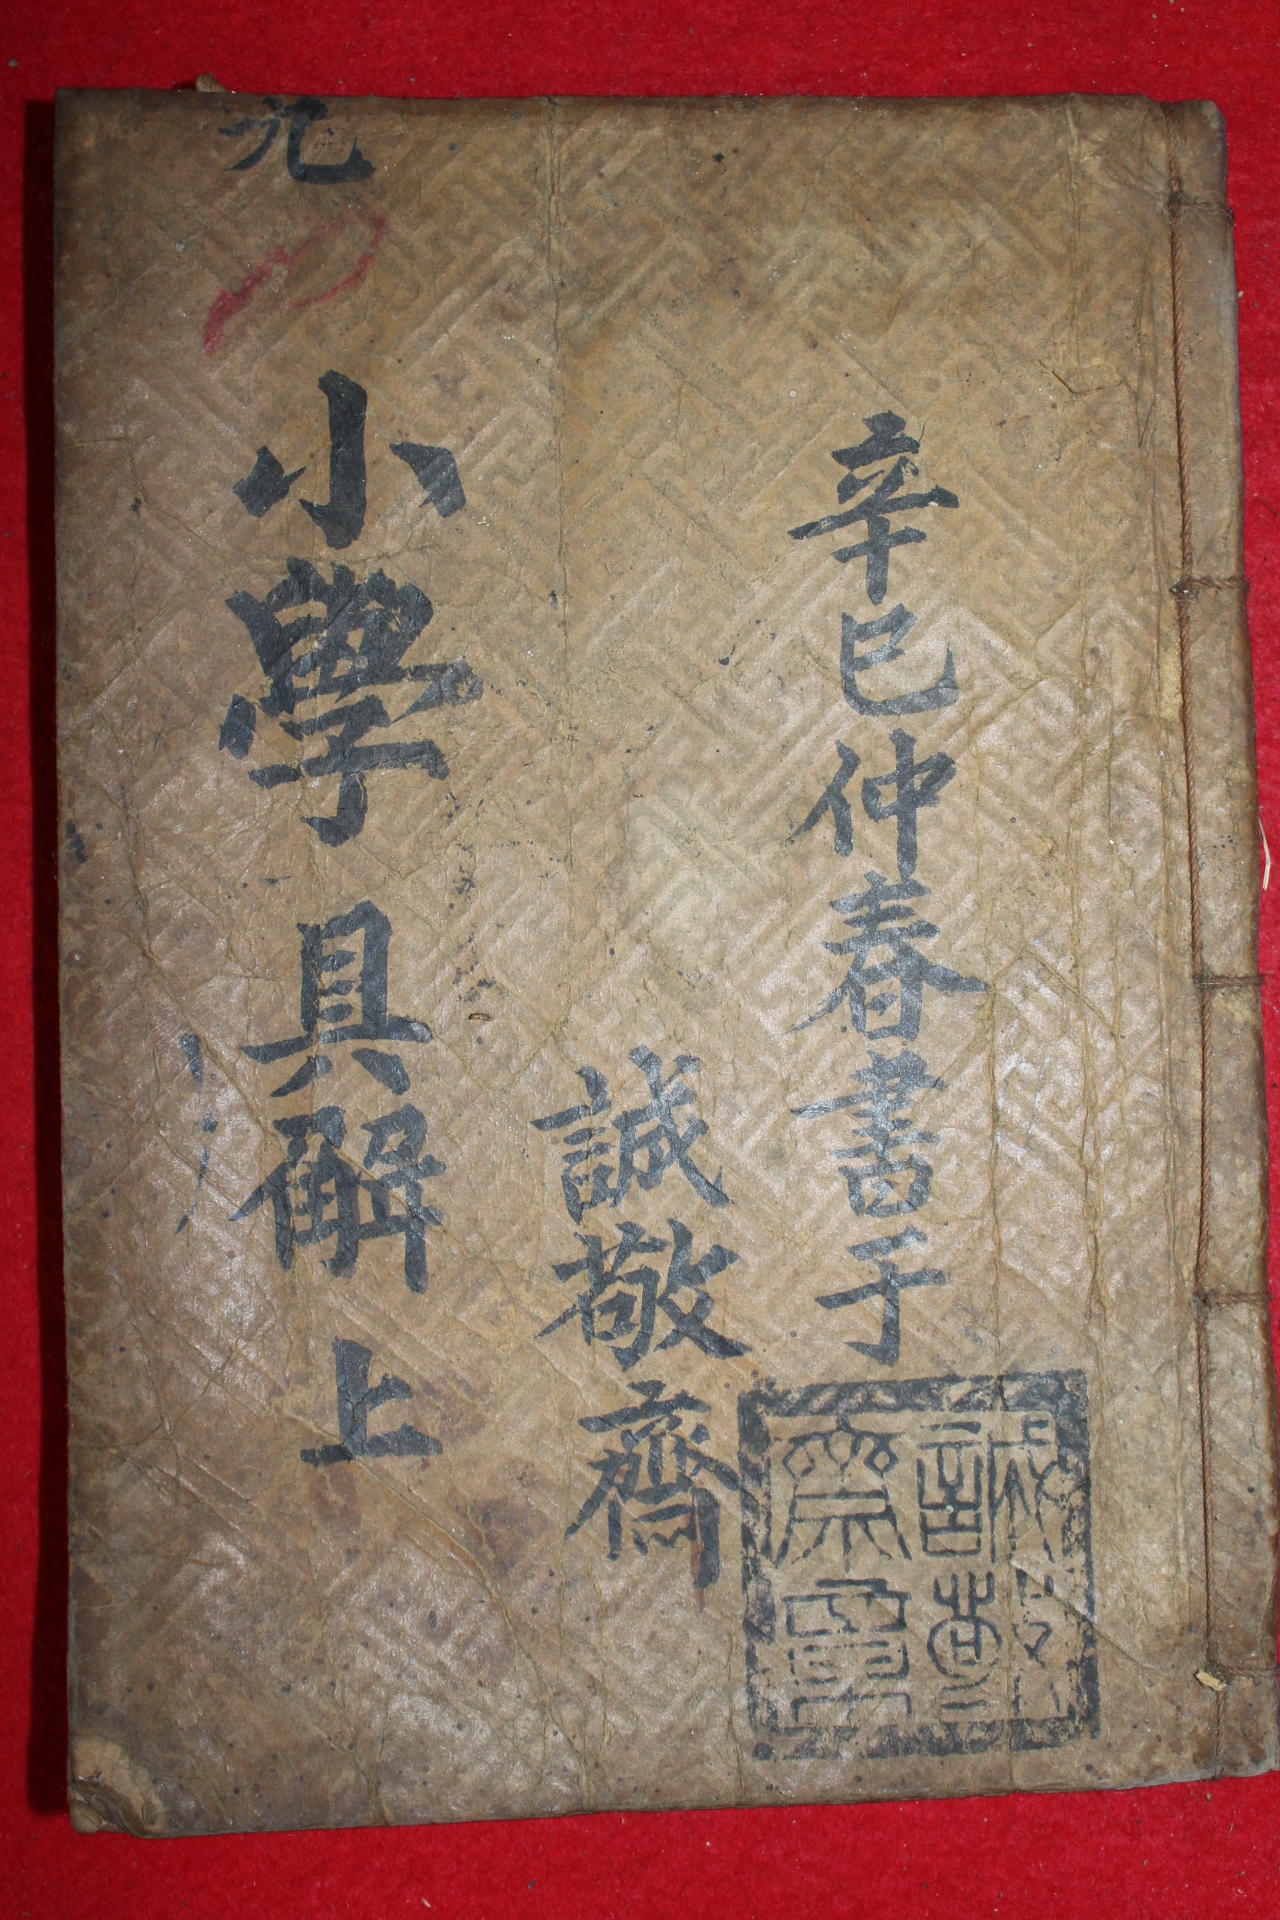 辛巳仲春書于
誠敬齋
小學具解 上
元